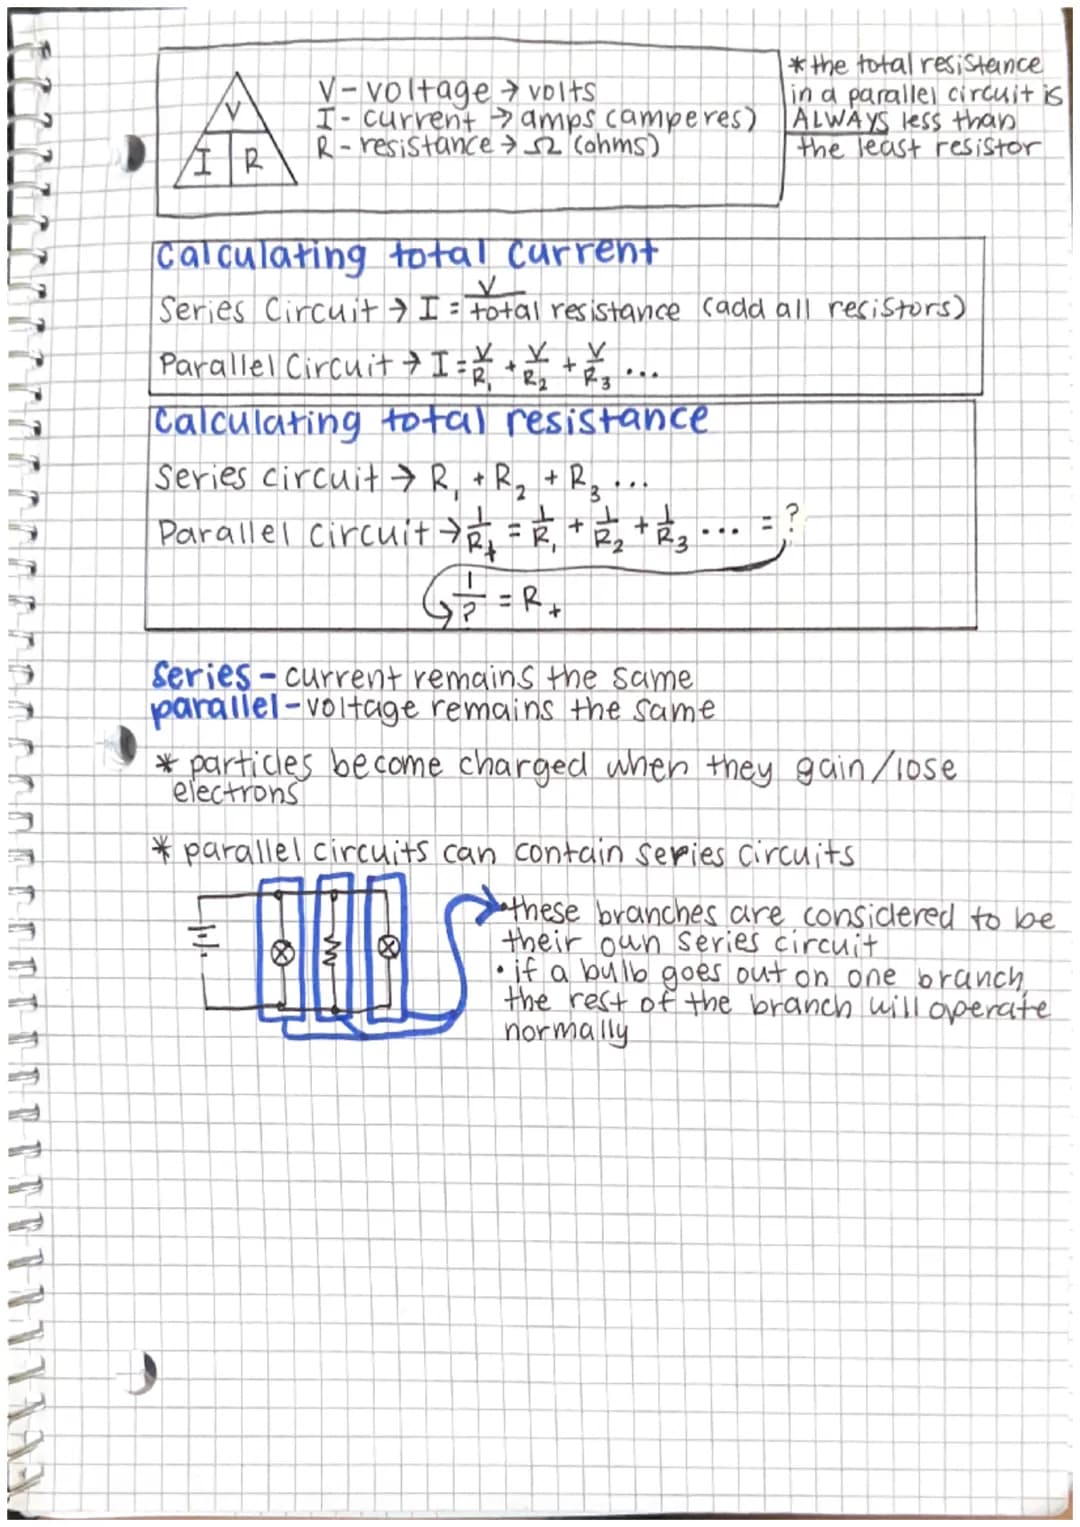 V
I R
V - voltage → volts
I - current → amps (amperes)
R - resistance → Ω (ohms)
* the total resistance
in a parallel circuit is
ALWAYS less than
the least resistor
Calculating total current
Series Circuit → I = V/total resistance (add all resistors)
Parallel Circuit → I = V/R₁ + V/R₂ + V/R₃ ...
Calculating total resistance
Series circuit → R₁ + R₂ + R₃ ...
Parallel circuit → 1/Rₜ = 1/R₁ + 1/R₂ + 1/R₃ ... = ?
1/? = Rₜ
series - current remains the same
parallel - voltage remains the same
* particles become charged when they gain/lose
electrons
* parallel circuits can contain series circuits
• these branches are considered to be
their own series circuit
• if a bulb goes out on one branch,
the rest of the branch will operate
normally